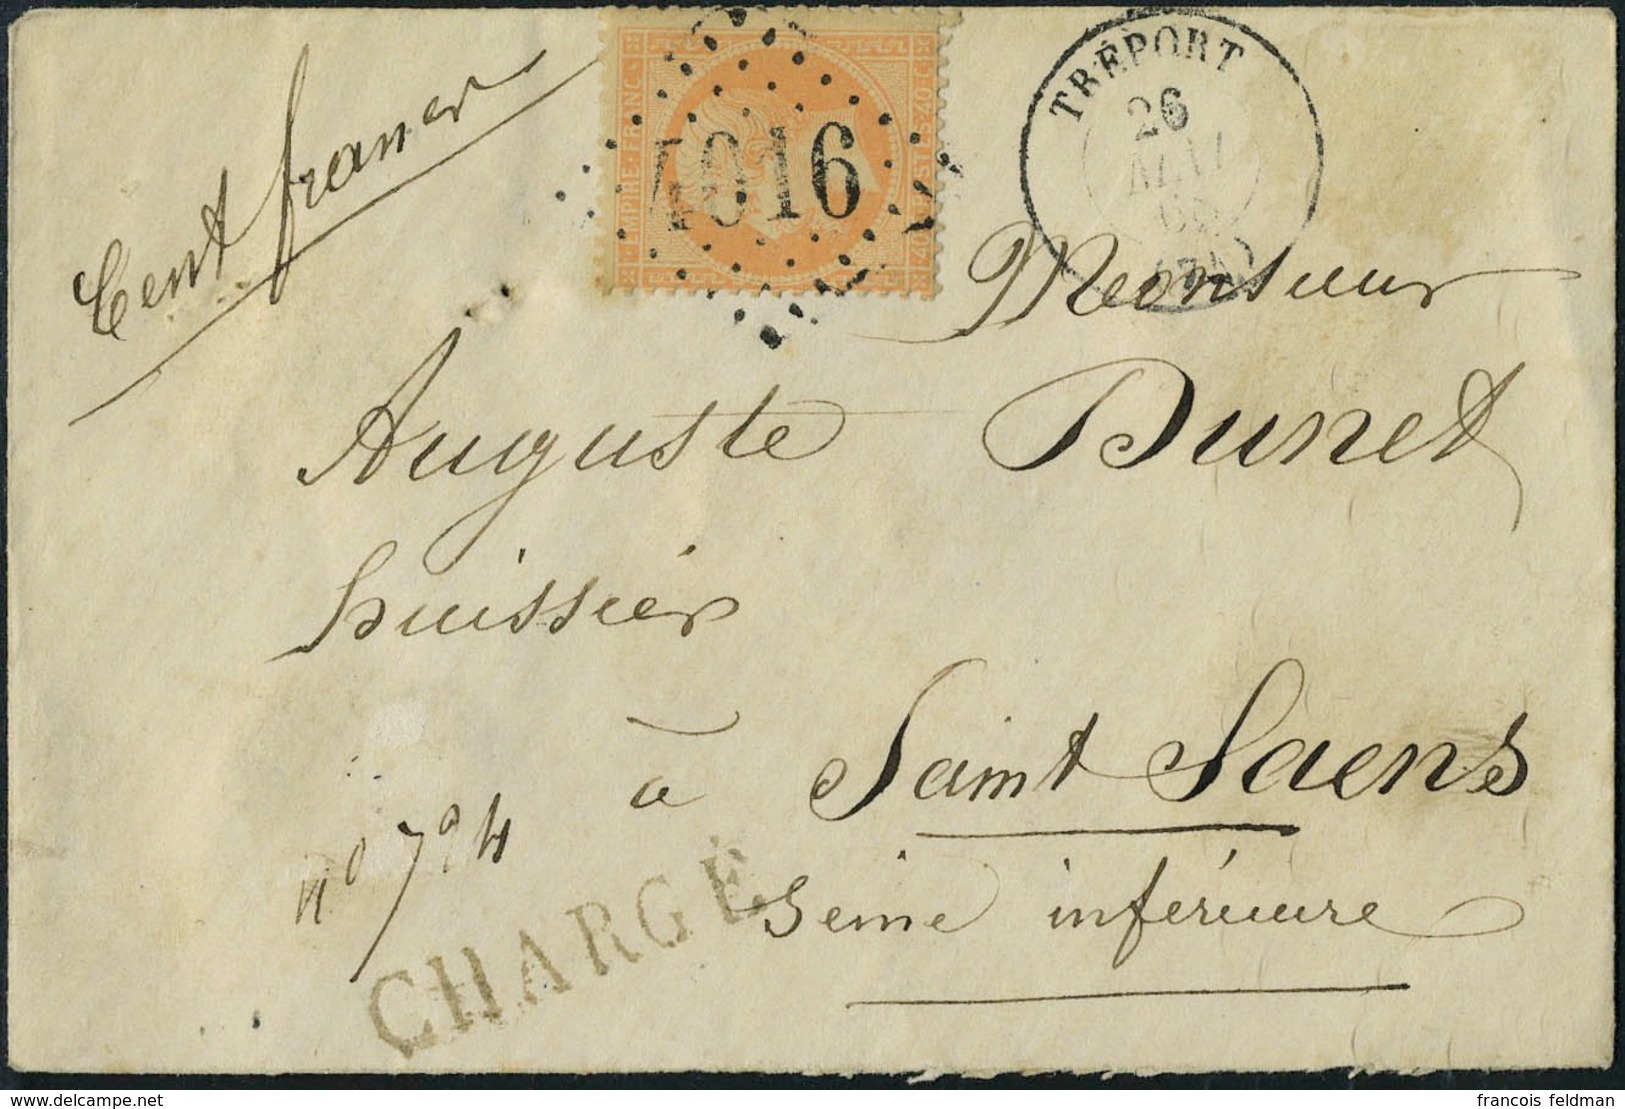 Cent francs
EMPIRE FRANC
4016
TRÉPORT
26
MAI
Monsieur
Auguste Dunet
huissier
à Saint Saens
Seine inférieure
no 794
CHARGÉ
delcampe.net
francois feldman